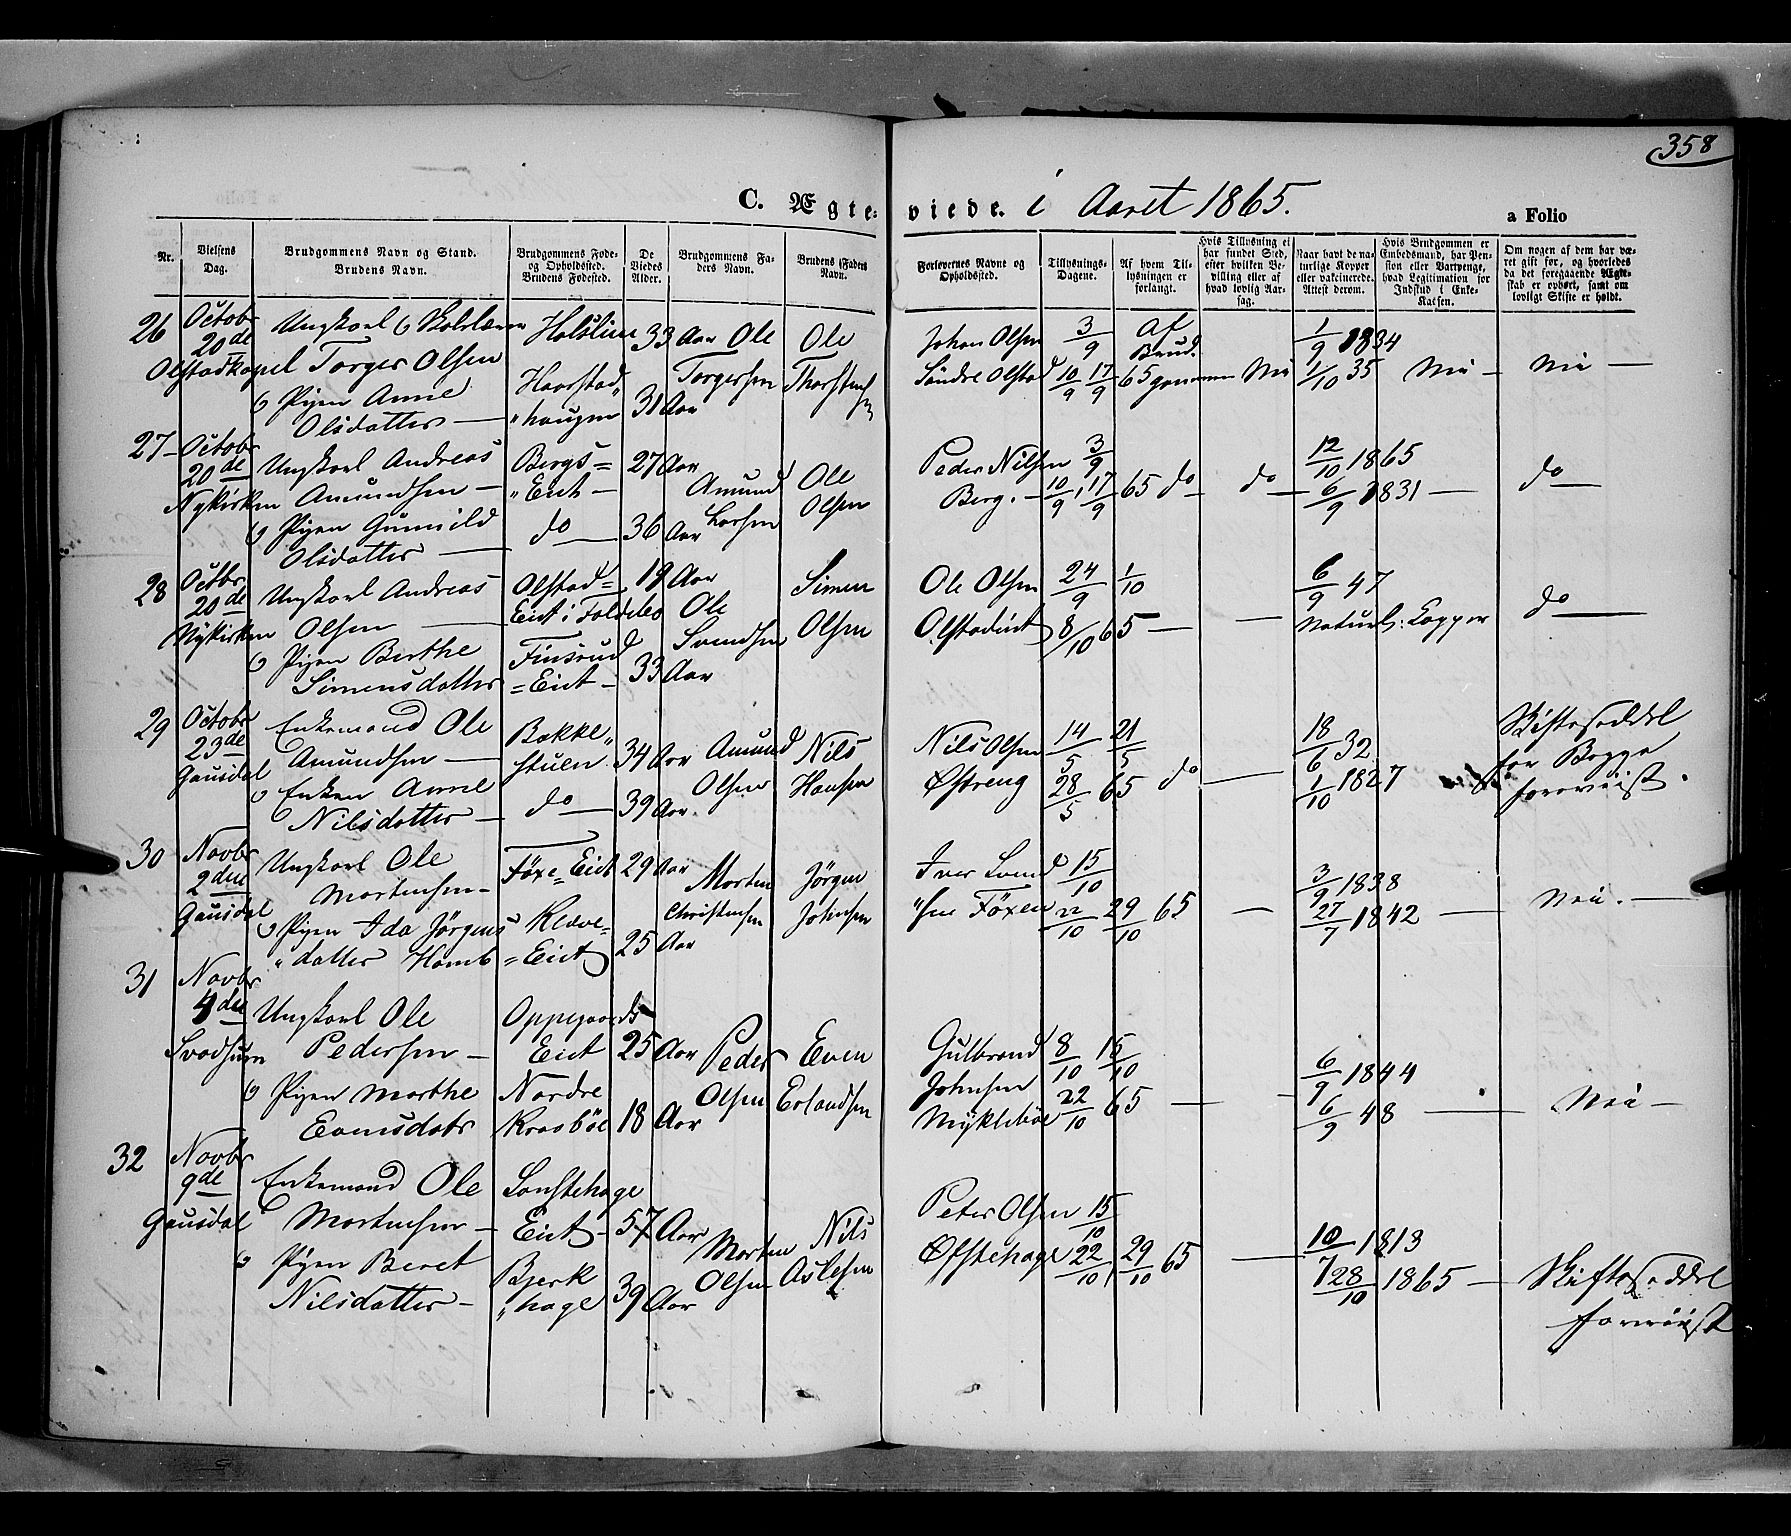 358
C. Ægteviede. i Aaret 1865.
a Folio
Nr.
Vielsens Dag.
Brudgommens Navn og Stand. Brudens Navn.
Brudgommens Føde- og Opholdssted. Brudens Fødested.
De Viedes Alder.
Brudgommens Faders Navn.
Brudens Faders Navn.
Forlovernes Navne og Opholdssted.
Tillysnings-Dagene.
Af hvem Tillysningen er forlangt.
Hvis Tillysning ei har fundet Sted, efter hvilken Bevilling eller af hvad lovlig Aarsag.
Naar havt de naturlige Kopper eller vakcinerede. Attest derom.
Hvis Brudgommen er Embedsmand, har Pension eller Vartpenge, hvad Legitimation for Indskud i Enke-Kassen.
Om nogen af dem har været gift før, og hvorledes da det foregaaende Ægteskab er ophørt, samt om lovligt Skifte er holdt.
26 Octobr 20de Olstadkapel
Ungkarl & Skolelærer Torger Olsen
& Pigen Anne Olsdatter —
Holslien
Haarstad„ „haugen
33 Aar
31 Aar
Ole Torgersen
Ole Thorstensen
Johan Olsen Söndre Olstad
3/9 10/9 17/9 65
Af Brudgommen
Nei
1/9 1834
1/10 35
Nei —
Nei —
27 Octobr 20de Nykirken
Ungkarl Andreas Amundsen —
& Pigen Gunnild Olsdatter —
Bergs= „Eiet —
do —
27 Aar
36 Aar
Amund Larsen
Ole Olsen
Peder Nilsen Berg. —
3/9 10/9, 17/9 65
do
do —
12/10 1865
6/9 1831 —
do —
28 Octbr 20de Nykirken
Ungkarl Andreas Olsen —
& Pigen Berthe Simensdatter
Olstad= Eiet i Foldebo
Finsrud =Eiet —
19 Aar
33 Aar
Ole Svendsen
Simen Olsen
Ole Olsen Olstadeiet
24/9 1/10 8/10 65 —
—
6/9 47
Naturl: Kopper
do —
29 Octobr 23de Gausdal
Enkemand Ole Amundsen —
& Enken Anne Nilsdatter —
Bakke„ stuen
do —
34 Aar
39 Aar
Amund Olsen
Nils Hansen
Nils Olsen Østreng
14/5 21/5 28/5 65
do —
18/6 32
1/10 1827
Skifteseddel for Begge foreviist.
30 Novbr 2den Gausdal
Ungkarl Ole Mortensen —
& Pigen Ida Jørgens „datter Homb
Föxe= Eiet
Kleve= =Eiet
29 Aar
25 Aar
Morten Christensen
Jørgen Johnsen
Iver Svend „sen Föxen
15/10 22/10 29/10 65
—
3/9 1838
27/7 1842 —
Nei. —
31 Novbr 4den Svadsum
Ungkarl Ole Pedersen —
& Pigen Marthe Evensdatr
Oppegaards Eiet
Nordre Kraabøe
25 Aar
18 Aar
Peder Olsen
Even Erlandsen
Gulbrand Johnsen Mykleböe
8/10 15/10 22/10 65 —
—
6/9 1844
6/9 48 —
Nei —
32 Novbr 9de Gausdal
Enkemand Ole Mortensen —
& Pigen Beret Nilsdatter —
Eiet —
Bjerk „hage
57 Aar
39 Aar
Morten Olsen
Nils Aslesen
Peter Olsen Øfstehage
15/10 22/10, 29/10 65
—
10/7 1813
28/10 1865 —
Skifteseddel foreviist